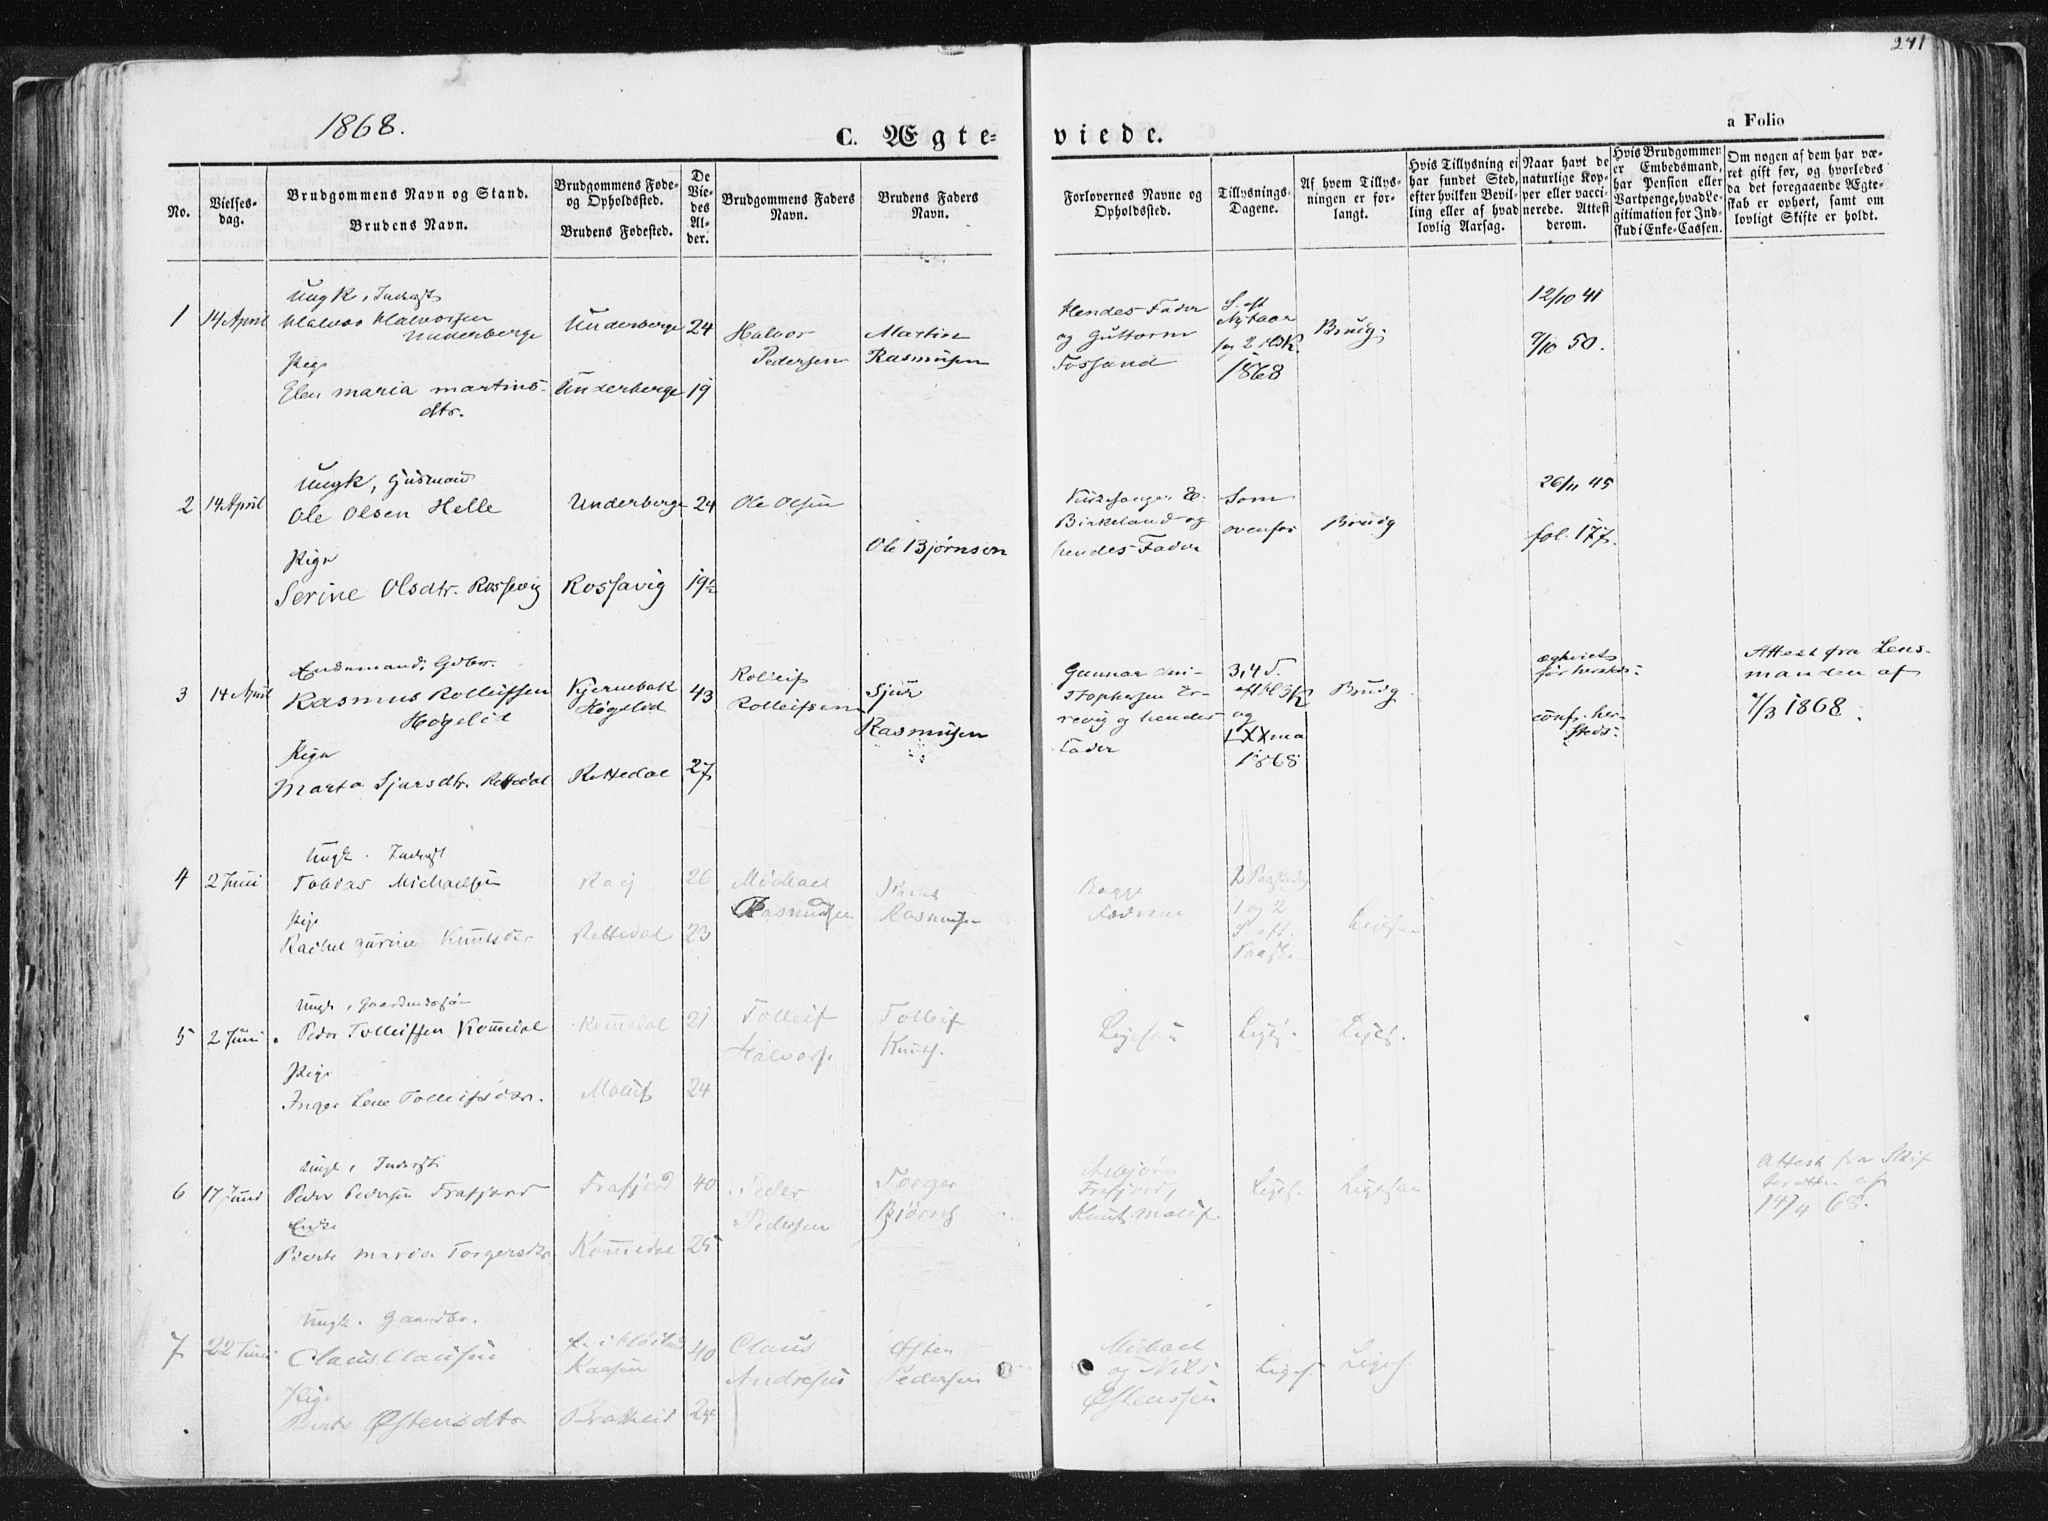 241
1868.
C. Ægte- viede.
a Folio
No.
Vielses-
dag.
Brudgommens Navn og Stand.
Brudens Navn.
Brudgommens Føde-
og Opholdssted.
Brudens Fødested.
De
Vie-
des
Al-
der.
Brudgommens Faders
Navn.
Brudens Faders
Navn.
Forlovernes Navne og
Opholdssted.
Tillysnings-
Dagene.
Af hvem Tillys-
ningen er for-
langt.
Hvis Tillysning ei
har fundet Sted,
efter hvilken Bevil-
ling eller af hvad
lovlig Aarsag.
Naar havt de
naturlige Kop-
per eller vacci-
nerede. Attest
derom.
Hvis Brudgommen
er Embedsmand,
har Pension eller
Vartpenge, hvad Le-
gitimation for Ind-
skud i Enke-Cassen.
Om nogen af dem har væ-
ret gift før, og hvorledes
da det foregaaende Ægte-
skab er ophørt, samt om
lovligt Skifte er holdt.
1
14 April
Ungk, Inderst
Halvor Halvorsen
Underberge
Pige
Elen maria martins-
dtr.
Underberge
Underberge
24
19
Halvor
Pedersen
Martin
Rasmusen
Hendes Fader
og Guttorm
Fossand
S. eft
Nytaar
1868
Brudg.
12/10 41
9/10 50.
2
14 April
Ungk, Gdsmand
Ole Olsen Helle
Pige
Serine Olsdtr. Rossavig
Underberge
Rossavig
24
19½
Ole Olsen
Ole Bjørnsen
Kirkesanger
Birkeland og
hendes Fader
Som
ovenfor
Brudg
26/11 45
fol. 177.
3
14 April
Enkemand, Gdbr.
Rasmus Rolleifsen
Høgelid
Pige
Marta Sjursdtr. Rettedal
Kjernebak
Høgelid
Rettedal
43
27
Rolleif
Rolleifsen
Sjur
Rasmusen
Gunnar Chri-
stophersen Er-
revig og hendes
Fader
3, 4 S.
eft H3K
og
LXXma
1868
Brudg
ægteviet
før herstds:
conf. her-
steds:
Attest fra Lens-
manden af
7/3 1868.
4
2 Juni
Ungk. Inderst
Tobias Michaelsen
Pige
Rachel Gurine Knutsdtr
Rettedal
26
23
Michael
Rasmusen
Rasmusen
Begge
Fædrene
2 Paaskedag
1 og 2
S. eft.
Paaske
Ligesaa
5
2 Juni
Ungk, Gaardmdssøn
Peder Tolleifsen Kommedal
Pige
Inger Lene Tolleifsdtr.
Kommedal
21
24
Tolleif
Halvors.
Tolleif
Knuts.
Ligesaa
Liges.
Liges.
6
17 Juni
Ungk, Inderst
Peder Pedersen Frafjord
Enke
Berte Maria Torgersdtr
Frafjord
Kommedal
40
25
Peder
Pedersen
Torger
Bjørns
Asbjørn
Frafjord,
Knut
Liges.
Ligesaa
Attest fra Skif
teretten af
14/4 68.
7
22 Juni
Ungk. Gaardbr.
Claus Clausen
Pige
Berte Østensdtr
Bratteid
40
24
Claus
Andresen
Østen
Pedersen
Michael
og Nils
Østenssen
Liges.
Liges.